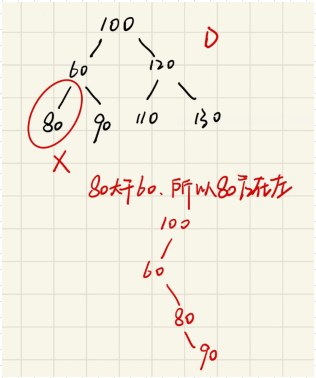 100
D
60 120
80 90 110 130
X
80大于60.所以80不在左
100
60
80
90